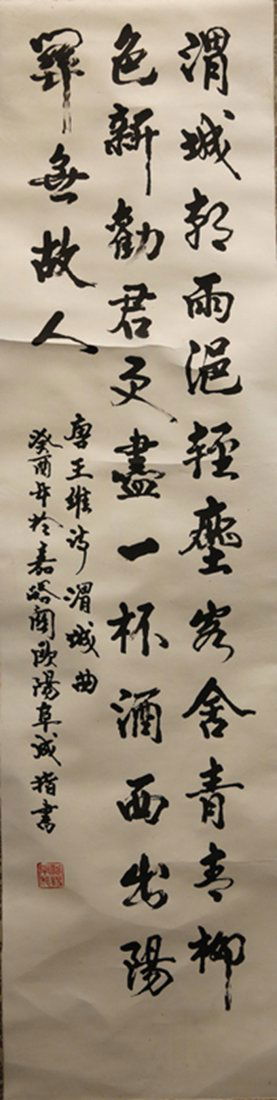 渭城朝雨浥輕塵客舍青青柳
色新勸君更盡一杯酒西出陽
關無故人
唐王維诗渭城曲
癸酉年於嘉峪關歐陽阜誠指書